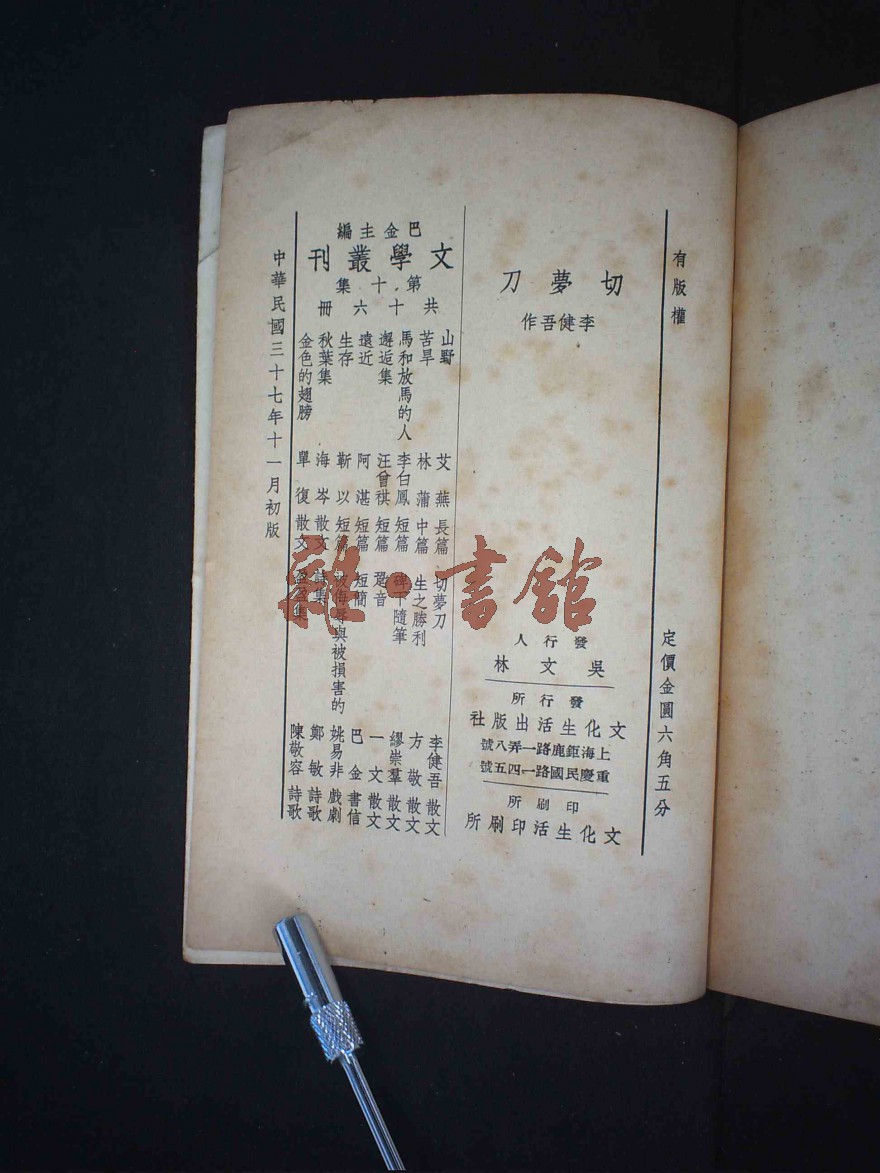 有版權
定價金圓六角五分
切夢刀
李健吾作
發行人
吳文林
發行所
文化生活出版社
上海鉅鹿路一弄八號
重慶民國路一四五號
印刷所
文化生活印刷所
巴金主編
文學叢刊
第十集
共十六冊
山野 艾蕪 長篇 切夢刀 李健吾 散文
苦旱 林蒲 中篇 生之勝利 方敬 散文
馬和放馬的人 李白鳳 短篇 碑下隨筆 繆崇羣 散文
邂逅集 汪曾祺 短篇 跫音 一文 散文
遠近 阿湛 短篇 短簡 巴金 書信
生存 靳以 短篇 被侮辱與被損害的 姚易非 戲劇
秋葉集 海岑 散文 詩集 鄭敏 詩歌
金色的翅膀 單復 散文 盈盈集 陳敬容 詩歌
中華民國三十七年十一月初版
雜·書館